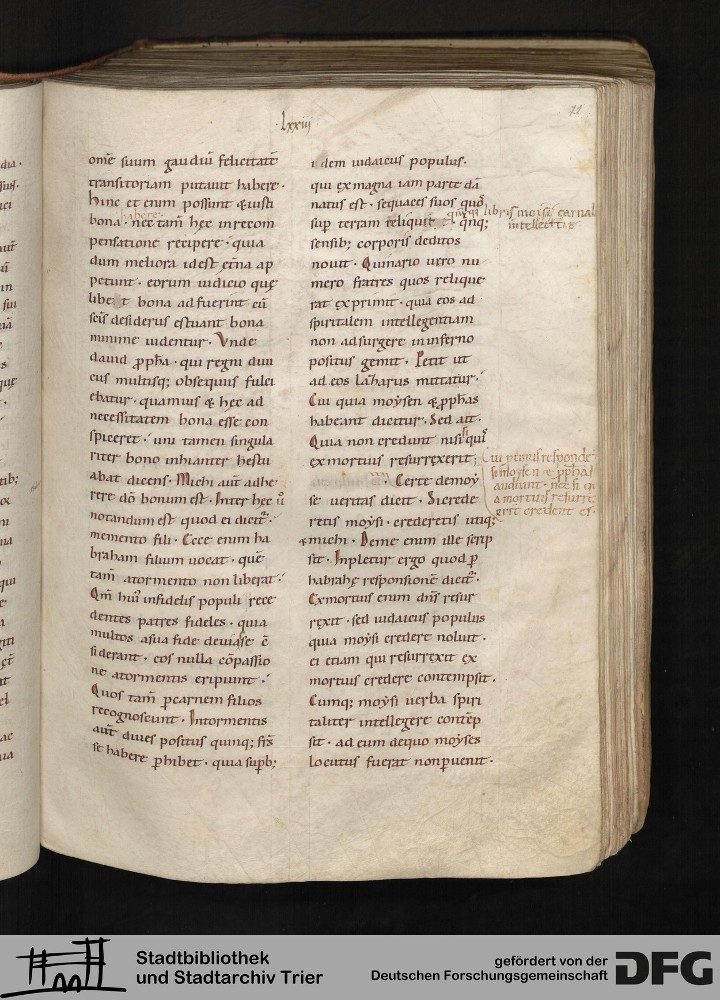 ·lxxiii
71
omē suum gaudiū felicitatē
transitoriam putauit habere·
hinc et enim possunt & iusti
habere·
bona· nec tam̄ hęc in recom
pensatione recipere· quia
dum meliora id est et̄na ap
petunt· eorum iudicio quę
libet bona adfuerint cū
sc̄is desideriis estuant bona
minime uidentur· Vnde
dauid ꝓph̄a· qui regni diui
ciis multisq; obsequiis fulci
ebatur· quamuis & hęc ad
necessitatem bona esse con
spiceret· uni tamen singula
riter bono inhianter hestu
abat dicens· Michi aut̄ adhe
rere dō bonum est· Inter hęc ū
notandum est quod ei dicit̄·
memento fili· Ecce enim ha
braham filium uocat· quē
tam̄ a tormento non liberat·
Qm̄ hui' infidelis populi prece
dentes patres fideles· quia
multos a sua fide deuiasse c̄
siderant· eos nulla cōpassio
ne a tormentis eripiunt·
Quos tam̄ ꝑ carnem filios
recognoscunt· In tormentis
aut̄ diues positus quinq; fr̄s
se habere ꝑhibet· quia supb;
idem iudaicus populus·
qui ex magna iam parte dā
natus est· sequaces suos quo'
sup terram reliquit qnq;
libris moisi carnal
intellectis
sensib; corporis deditos
nouit· Quinario uero nu
mero fratres quos relique
rat exprimit· quia eos ad
spiritalem intellegentiam
non adsurgere in inferno
positus gemit· Petit ut
ad eos lazharus mittatur·
Cui quia moysen & ꝓphas
habeant dicitur· Sed ait·
Quia non credunt nisi si qui'
ex mortuis resurrexerit;
Cui ptinus responde
si moysen & ꝓphas
audiunt· nec si q
a mortuis resurre
xerit credent ei·
·Certe de moy
se ueritas dicit· Si crede
retis moysi· crederetis utiq;
& michi· De me enim ille scrip
sit· Inpletur ergo quod ꝑ
habrahę responsionē dicit̄·
Ex mortuis enim dn̄s resur
rexit· sed iudaicus populus
quia moysi credere noluit·
ei etiam qui resurrexit ex
mortuis credere contempsit·
Cumq; moysi uerba spiri
taliter intellegere contēp
sit· ad eum de quo moyses
locutus fuerat non ꝑuenit·
Stadtbibliothek
und Stadtarchiv Trier
gefördert von der
Deutschen Forschungsgemeinschaft
DFG